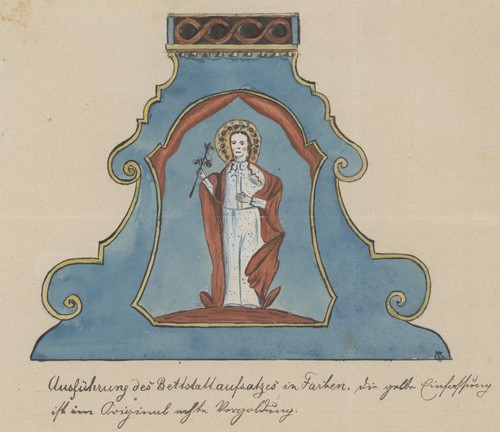 Ausführung des Bettstattaufsatzes in Farben. die gelbe Einfassung
ist im Original echte Vergoldung.